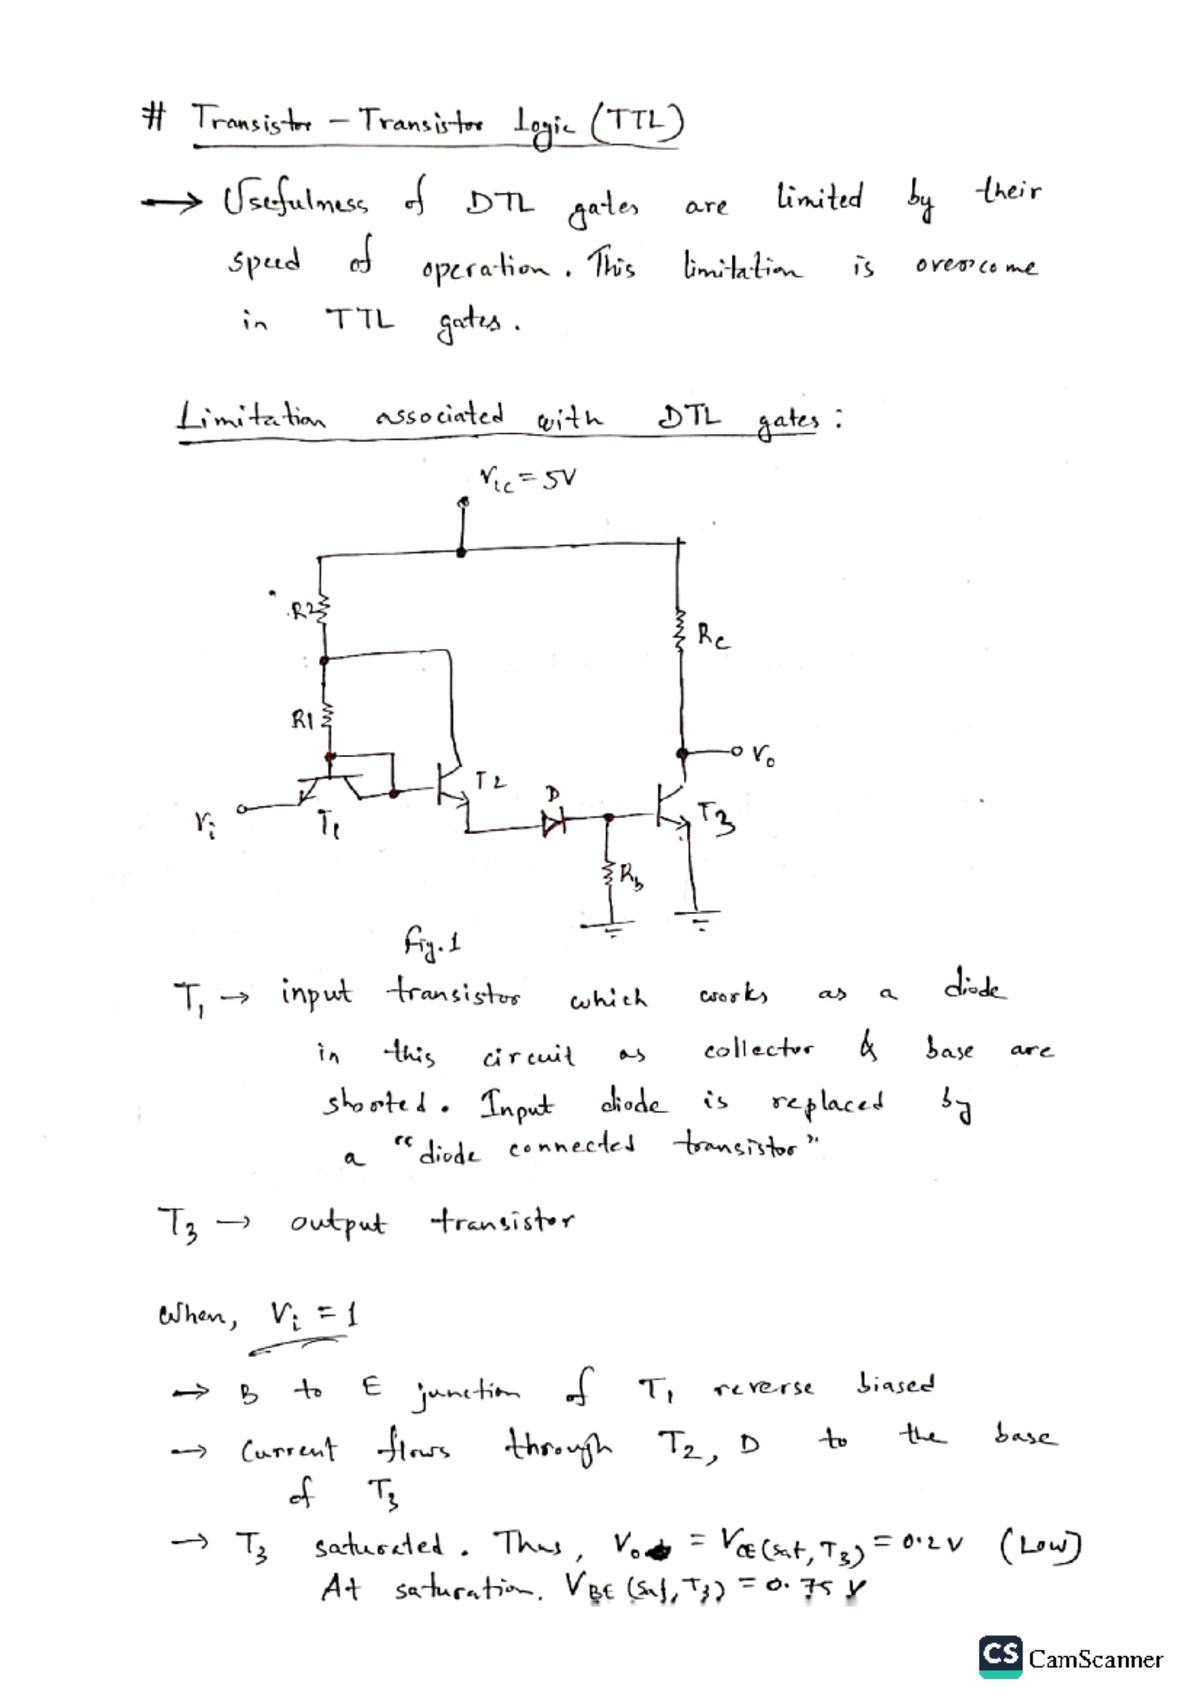 # Transistor - Transistor Logic (TTL)
→ Usefulness of DTL gates are limited by their
speed of operation. This limitation is overcome
in TTL gates.
Limitation associated with DTL gates:
Vcc = 5V
R2
Rc
R1
Vo
T2
D
T3
Vi
T1
Rb
Fig. 1
T1 → input transistor which works as a diode
in this circuit as collector & base are
shorted. Input diode is replaced by
a "diode connected transistor"
T3 → output transistor
When, Vi = 1
→ B to E junction of T1 reverse biased
→ Current flows through T2, D to the base
of T3
→ T3 saturated. Thus, Vo = VCE (sat, T3) = 0.2V (Low)
At saturation. VBE (sat, T3) = 0.75 V
CS CamScanner